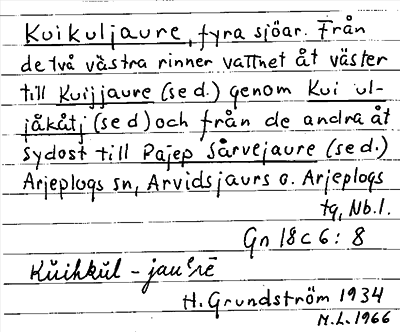 Kuikuljaure, fyra sjöar. Från
de två västra rinner vattnet åt väster
till Kuijjaure (se d.) genom Kui ul-
jåkåtj (se d) och från de andra åt
sydost till Pajep Sårvejaure (se d.)
Arjeplogs sn, Arvidsjaurs o. Arjeplogs
tg, Nb.l.
Gn 18 c 6 : 8
Kŭihkŭl - jauˈrē
H. Grundström 1934
M.L. 1966